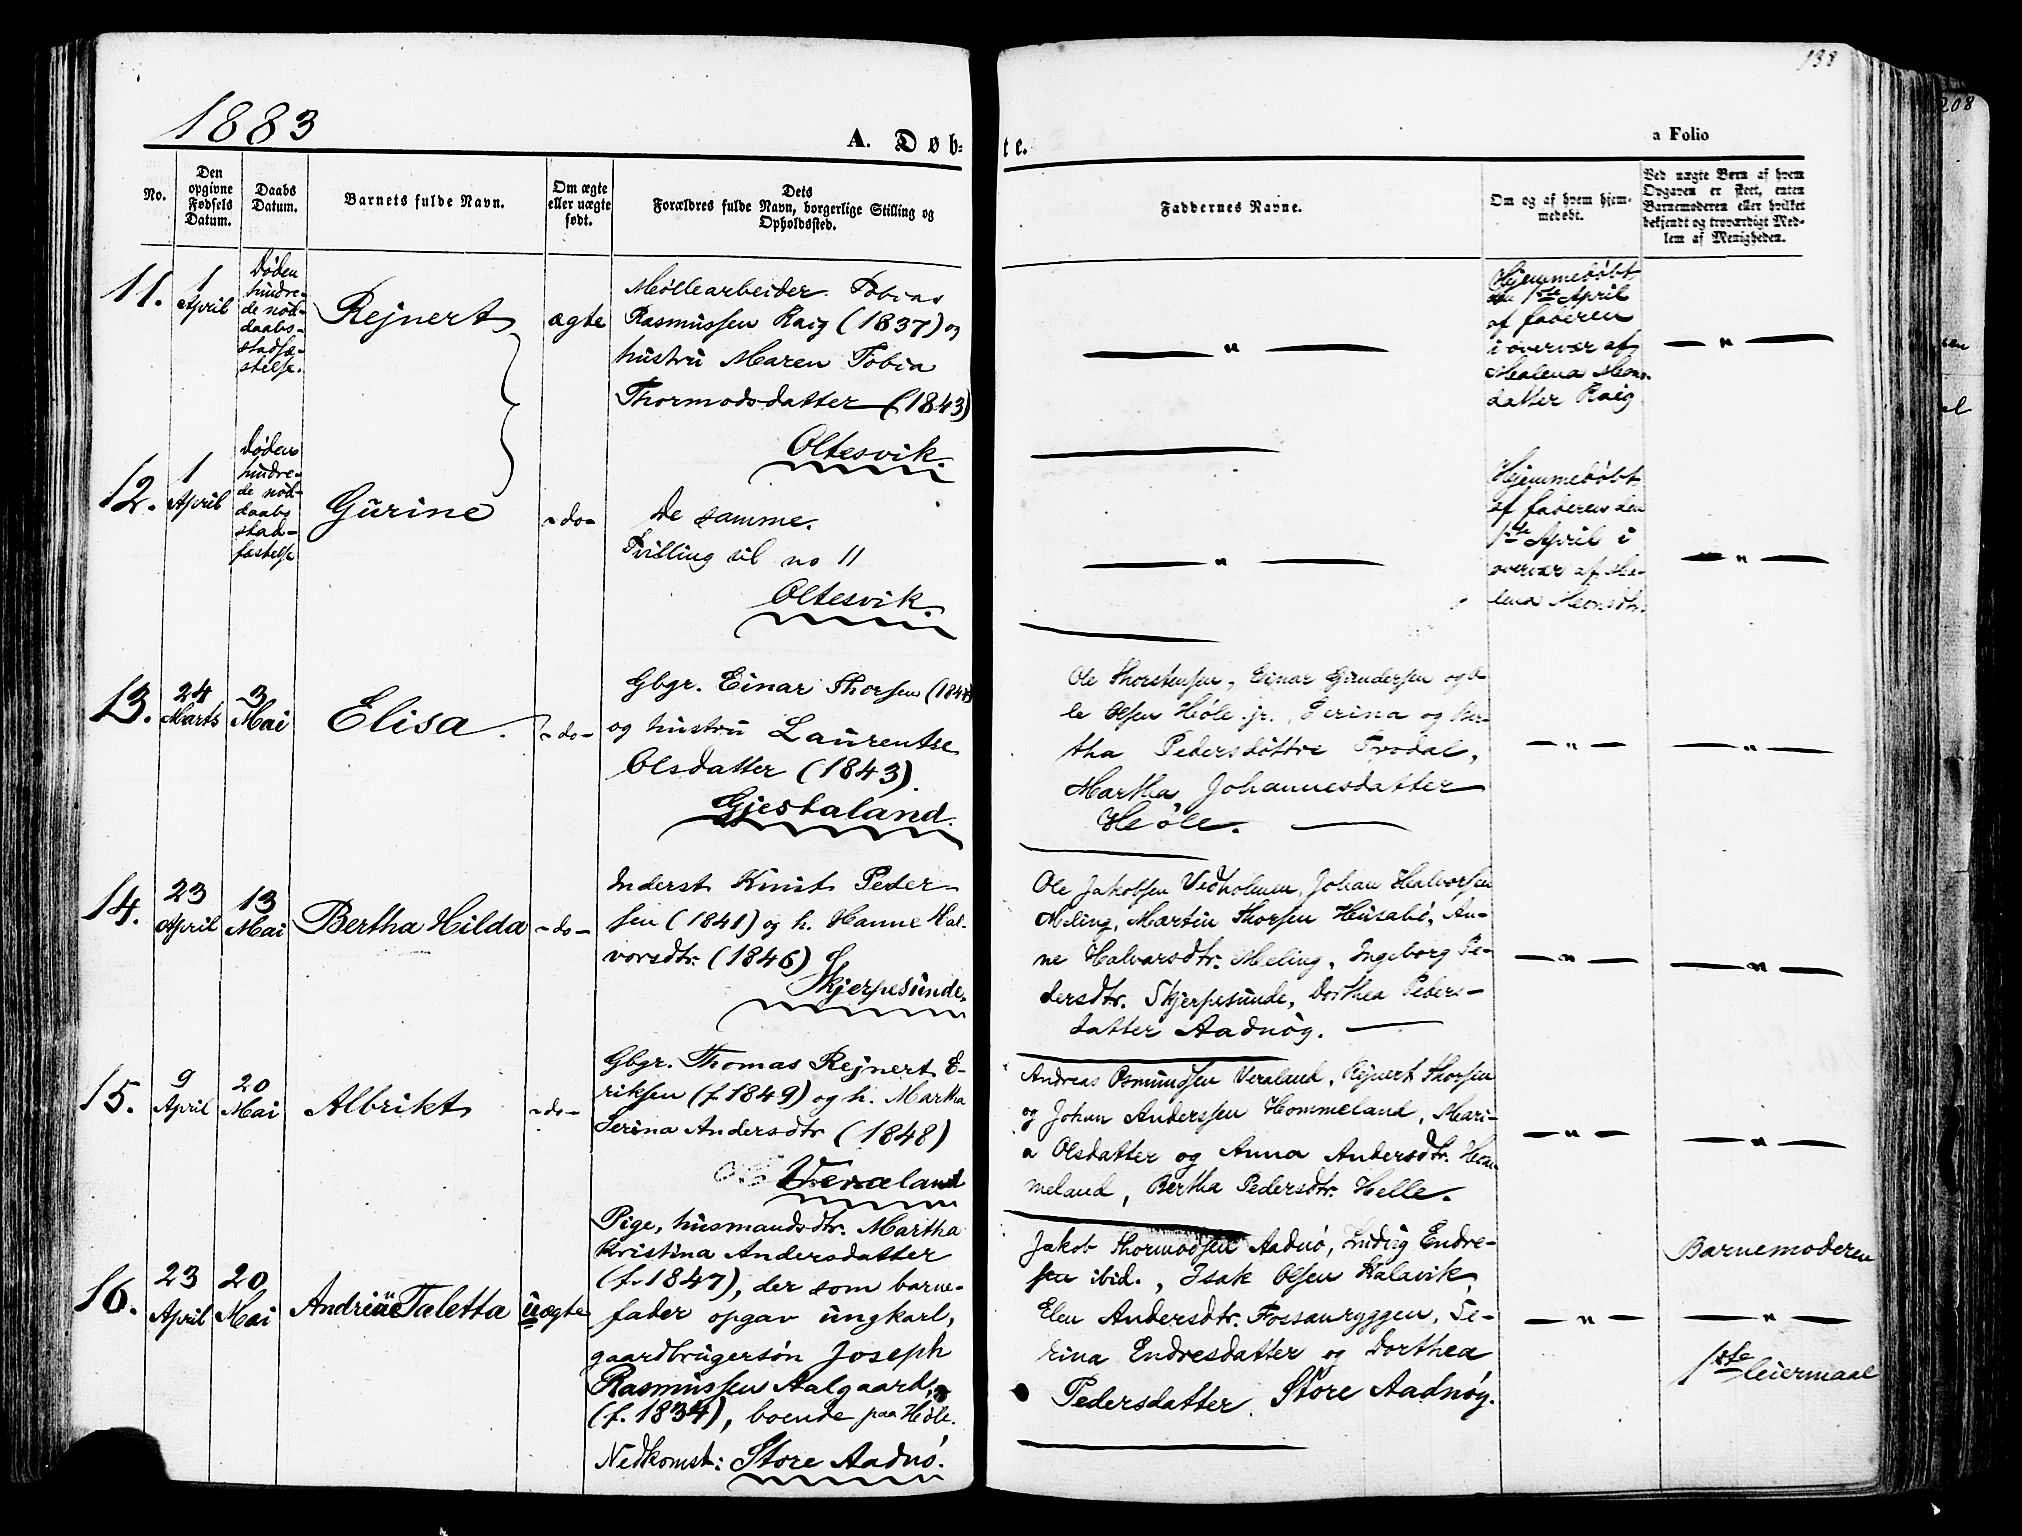 138
208
1883
A. Døb-
te.
a Folio
No.
Den
opgivne
Fødsels
Datum.
Daabs
Datum.
Barnets fulde Navn.
Om ægte
eller uægte
født.
Dets
Forældres fulde Navn, borgerlige Stilling og
Opholdssted.
Faddernes Navne.
Om og af hvem hjem-
medøbt.
Ved uægte Børn af hvem
Opgaven er skeet, enten
Barnemoderen eller hvilket
bekjendt og troværdigt Med-
lem af Menigheden.
11.
1
April
Døden
hindre-
de nød-
daabs-
stadfæ-
stelse.
Rejnert
ægte
Møllearbeider Tobias
Rasmussen Raig (1837) og
hustru Maren Tobia
Thormodsdatter (1843)
Oltesvik.
"
Hjemmedøbt
den 1ste April
af faderen
i overvær af
Malena Mons-
datter Raig
"
12.
1
April
Døden
hindre-
de nød-
daabs
stad-
fæstelse
Gurine
- do -
De samme.
Tvilling til no 11
Oltesvik.
"
Hjemmedøbt
af faderen den
1ste April i
overvær af Ma-
lena Monsdtr.
"
13.
24
Marts
3
Mai
Elisa
- do -
Gbgr. Einar Thorsen
og hustru Laurentse
Olsdatter (1843).
Gjestaland.
Ole Thorstensen, Einar Gundersen og O-
le Olsen Høle jr., Serina og Ber-
tha Pedersdøttre Frodal,
Martha Johannesdatter
Høle.
"
"
14.
23
April
13
Mai
Bertha Hilda
- do -
Inderst Knut Peder-
sen (1841) og h. Hanne Hal-
vorsdtr. (1846)
Skjerpesunde.
Ole Jakobsen Vedholmen, Johan Halvorsen
Meling, Martin Thorsen Husabø, An-
ne Halvarsdtr. Meling, Ingeborg Pe-
dersdtr. Skjerpesunde, Dorthea Peders-
datter Aadnøy.
"
"
15.
9
April
20
Mai
Albrikt
- do -
Gbgr. Thomas Rejnert E-
riksen (f. 1849) og h. Martha
Serina Andersdtr (1848)
Veraland
Andreas Osmundsen Veraland, Rejnert Thorsen
og Johan Anderssen Hommeland, Mari-
a Olsdatter og Anna Andersdtr. Hom-
meland, Bertha Pedersdtr. Helle.
"
"
16.
23
April
20
Mai
Andrine Taletta
uægte
Pige, husmandsdtr. Martha
Kristina Andersdatter
(f. 1847), der som barne-
fader opgav ungkarl,
gaardbrugersøn Joseph
Rasmussen Aalgaard,
(f. 1834), boende paa Høle.
Nedkomst: Store Aadnø.
Jakob Thormodsen Aadnø, Endre-
sen ibid., Isak Olsen Kalavik,
Elen Andersdtr. Fossanryggen, Se-
rina Endresdatter og Dorthea
Pedersdatter Store Aadnøy.
"
Barnemoderen
"
1ste leiermaal